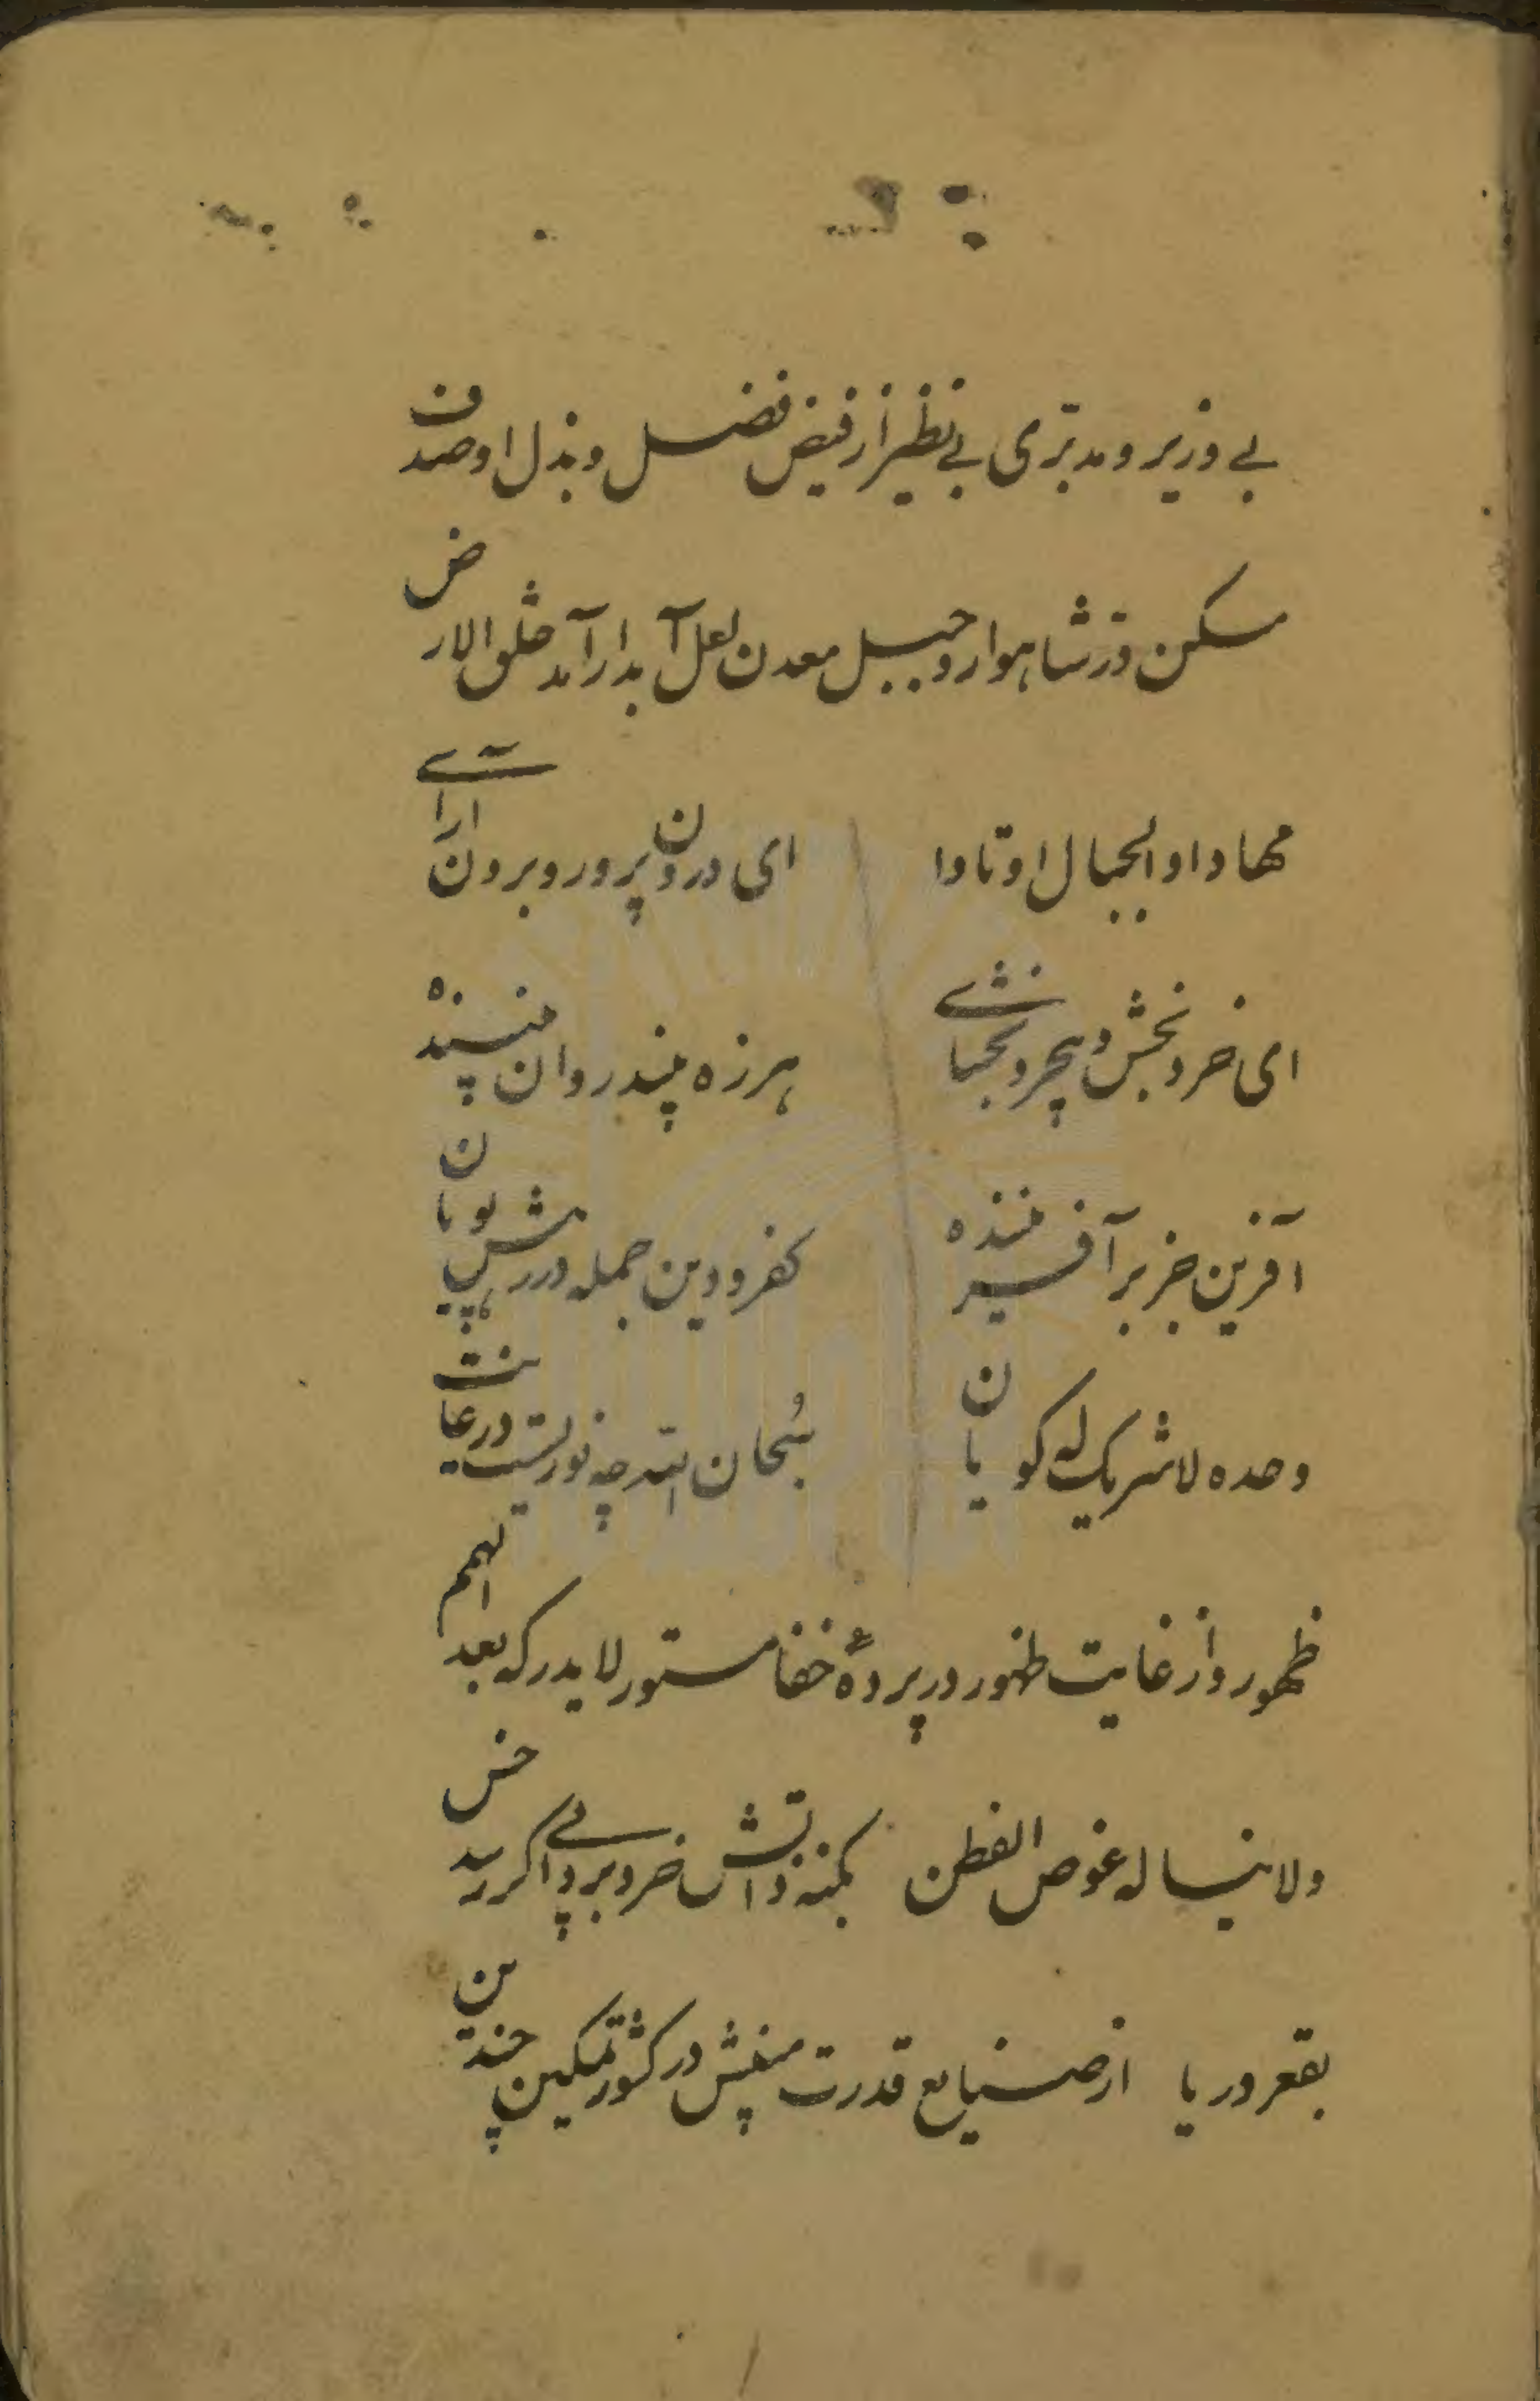 بے وزیر و مدبّری بے نظیر از فیض فضل و بذل او صدف
مسکن درّ شاهوار و جبیل معدن لعل آبدار آمد خلق الارض
مهادا و الجبال اوتادا ای درون پرور و برون آرائے
ای خرد بخش و بیخرد بخشائے هرزه پندد روان پسنده
آفرین جز بر آفریننده کفر و دین جمله در رهش پویان
وحده لا شریک له گویان سُبحان الله چه نوریست در غایت
ظهور و از غایت ظهور در پردهٔ خفا مستور لا یدرکه بعد الهمم
و لا یناله غوص الفطن بکنه ذاتش خرد برد پی اگر رسد خس
بقعر دریا از صنایع قدرت منقش در کشور تمکین چندین